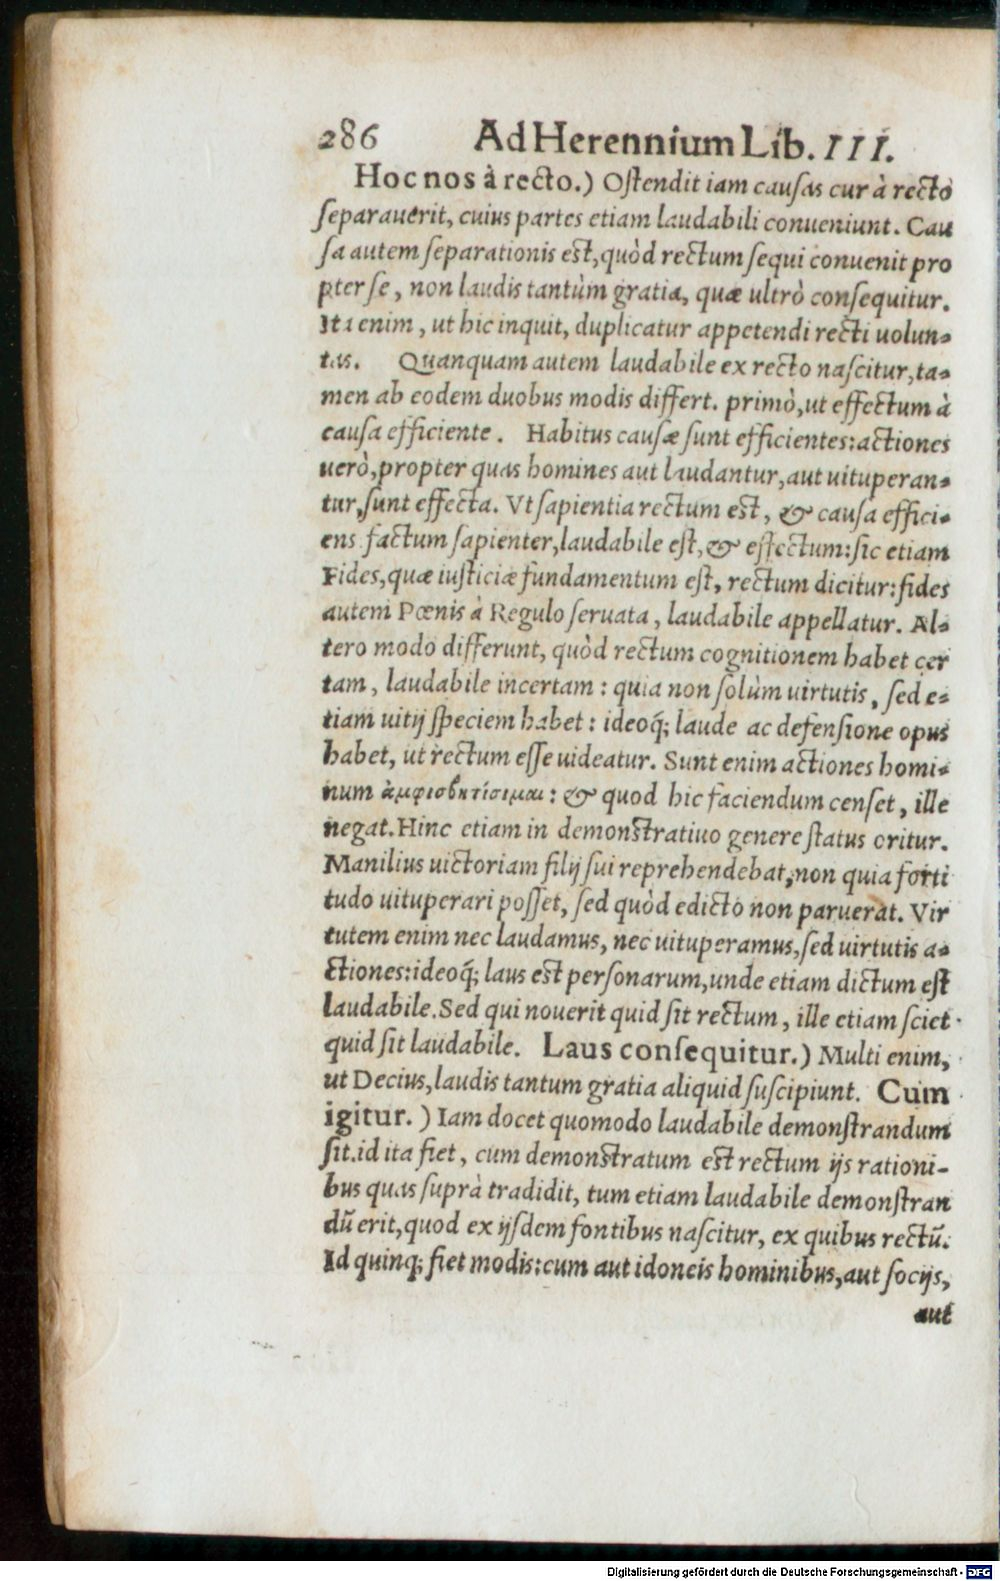 286 Ad Herennium Lib. III.
Hoc nos à recto.) Ostendit iam causas cur à recto
separauerit, cuius partes etiam laudabili conueniunt. Cau
sa autem separationis est, quòd rectum sequi conuenit pro
pter se, non laudis tantùm gratia, quæ ultrò consequitur.
Ita enim, ut hic inquit, duplicatur appetendi recti uolun-
tas. Quanquam autem laudabile ex recto nascitur, ta-
men ab eodem duobus modis differt. primò, ut effectum à
causa efficiente. Habitus causæ sunt efficientes: actiones
uerò, propter quas homines aut laudantur, aut uituperan-
tur, sunt effecta. Vt sapientia rectum est, & causa effici-
ens factum sapienter, laudabile est, & effectum: sic etiam
Fides, quæ iusticiæ fundamentum est, rectum dicitur: fides
autem Pœnis à Regulo seruata, laudabile appellatur. Al-
tero modo differunt, quòd rectum cognitionem habet cer
tam, laudabile incertam: quia non solùm uirtutis, sed e-
tiam uitij speciem habet: ideoq́; laude ac defensione opus
habet, ut rectum esse uideatur. Sunt enim actiones homi-
num ἀμφισβητίσιμαι: & quod hic faciendum censet, ille
negat. Hinc etiam in demonstratiuo genere status oritur.
Manilius uictoriam filij sui reprehendebat, non quia forti
tudo uituperari posset, sed quòd edicto non paruerat. Vir
tutem enim nec laudamus, nec uituperamus, sed uirtutis a-
ctiones: ideoq́; laus est personarum, unde etiam dictum est
laudabile. Sed qui nouerit quid sit rectum, ille etiam sciet
quid sit laudabile. Laus consequitur.) Multi enim,
ut Decius, laudis tantum gratia aliquid suscipiunt. Cum
igitur.) Iam docet quomodo laudabile demonstrandum
sit. id ita fiet, cum demonstratum est rectum ijs rationi-
bus quas suprà tradidit, tum etiam laudabile demonstran
dū erit, quod ex ijsdem fontibus nascitur, ex quibus rectū.
Id quinq; fiet modis: cum aut idoneis hominibus, aut socijs,
aut
Digitalisierung gefördert durch die Deutsche Forschungsgemeinschaft - DFG